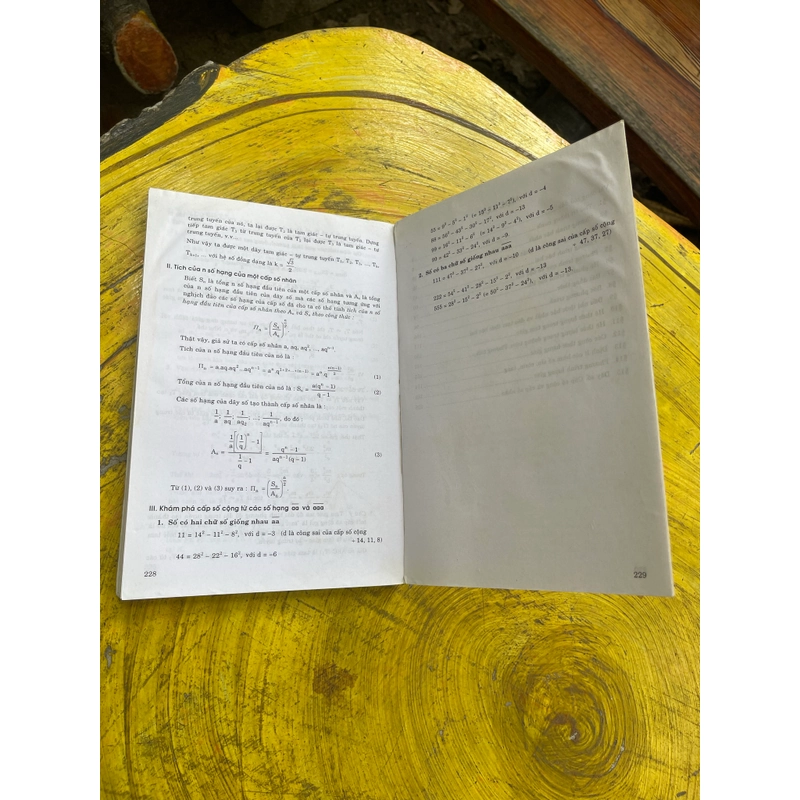 trung tuyến của nó, ta lại được T₂ là tam giác – tự trung tuyến. Dựng
tiếp tam giác T₃ từ trung tuyến của T₂ lại được T₃ là tam giác – tự
trung tuyến, v.v...
Như vậy ta được một dãy tam giác – tự trung tuyến T₁, T₂, T₃, ..., Tₙ,
Tₙ₊₁, ... với hệ số đồng dạng là k = √3/2
II. Tích của n số hạng của một cấp số nhân
Biết Sₙ là tổng n số hạng đầu tiên của một cấp số nhân và Aₙ là tổng
của n số hạng đầu tiên của dãy số mà các số hạng tương ứng với
nghịch đảo các số hạng của cấp số đã cho ta có thể tính tích của n số
hạng đầu tiên của cấp số nhân theo Aₙ và Sₙ theo công thức :
Πₙ = (Sₙ/Aₙ)^(n/2)
Thật vậy, giả sử ta có cấp số nhân a, aq, aq², ..., aqⁿ⁻¹.
Tích của n số hạng đầu tiên của nó là :
Πₙ = a.aq.aq²...aqⁿ⁻¹ = aⁿ.q^(1+2+...+(n−1)) = aⁿ.q^(n(n−1)/2) (1)
Tổng của n số hạng đầu tiên của nó là : Sₙ = a(qⁿ − 1)/(q − 1) (2)
Các số hạng của dãy số tạo thành cấp số nhân là :
1/a; 1/aq; 1/aq₂; ...; 1/aqⁿ⁻¹, do đó :
Aₙ = (1/a[(1/q)ⁿ − 1])/(1/q − 1) = (qⁿ − 1)/(aqⁿ⁻¹(q − 1)) (3)
Từ (1), (2) và (3) suy ra : Πₙ = (Sₙ/Aₙ)^(n/2)
III. Khám phá cấp số cộng từ các số hạng a̅a̅ và a̅a̅a̅
1. Số có hai chữ số giống nhau a̅a̅
11 = 14² − 11² − 8², với d = −3 (d là công sai của cấp số cộng
÷ 14, 11, 8)
44 = 28² − 22² − 16², với d = −6
228
với d = −4
với d = −13
với d = −5
99 = 42² − 33² − 24², với d = −9
2. Số có ba chữ số giống nhau a̅a̅a̅
111 = 47² − 37² − 27², với d = −10 (d là công sai của cấp số cộng
÷ 47, 37, 27)
222 = 54² − 41² − 28²
với d = −13
với d = −13.
229